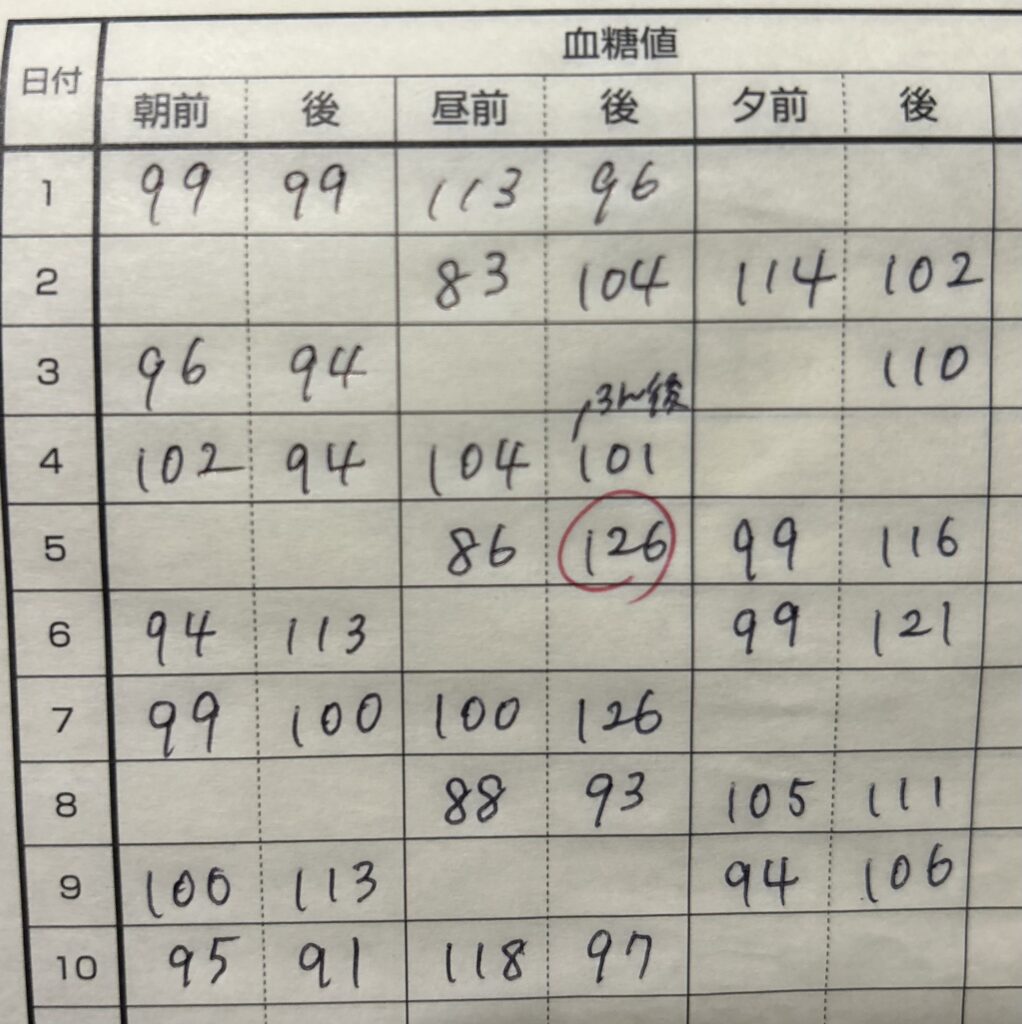 血糖値
日付 朝前 後 昼前 後 夕前 後
1 99 99 113 96
2 83 104 114 102
3 96 94 110
3h後
4 102 94 104 101
5 86 126 99 116
6 94 113 99 121
7 99 100 100 126
8 88 93 105 111
9 100 113 94 106
10 95 91 118 97